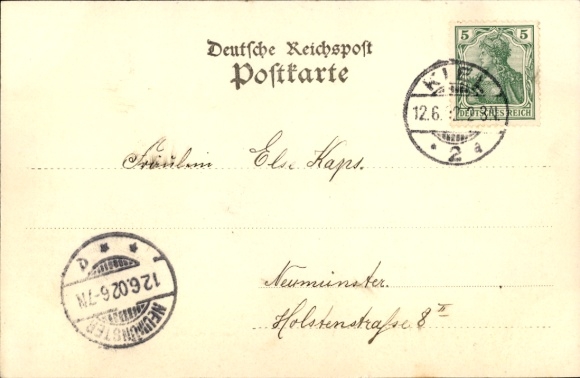 Deutsche Reichspost
Postkarte
5 5
DEUTSCHES REICH
KIEL
12.6. 2-3N
* 2 a
Fräulein Else Kaps.
Neumünster.
Holstenstraſse 8 II
NEUMÜNSTER
12.6.02 6-7N
* *